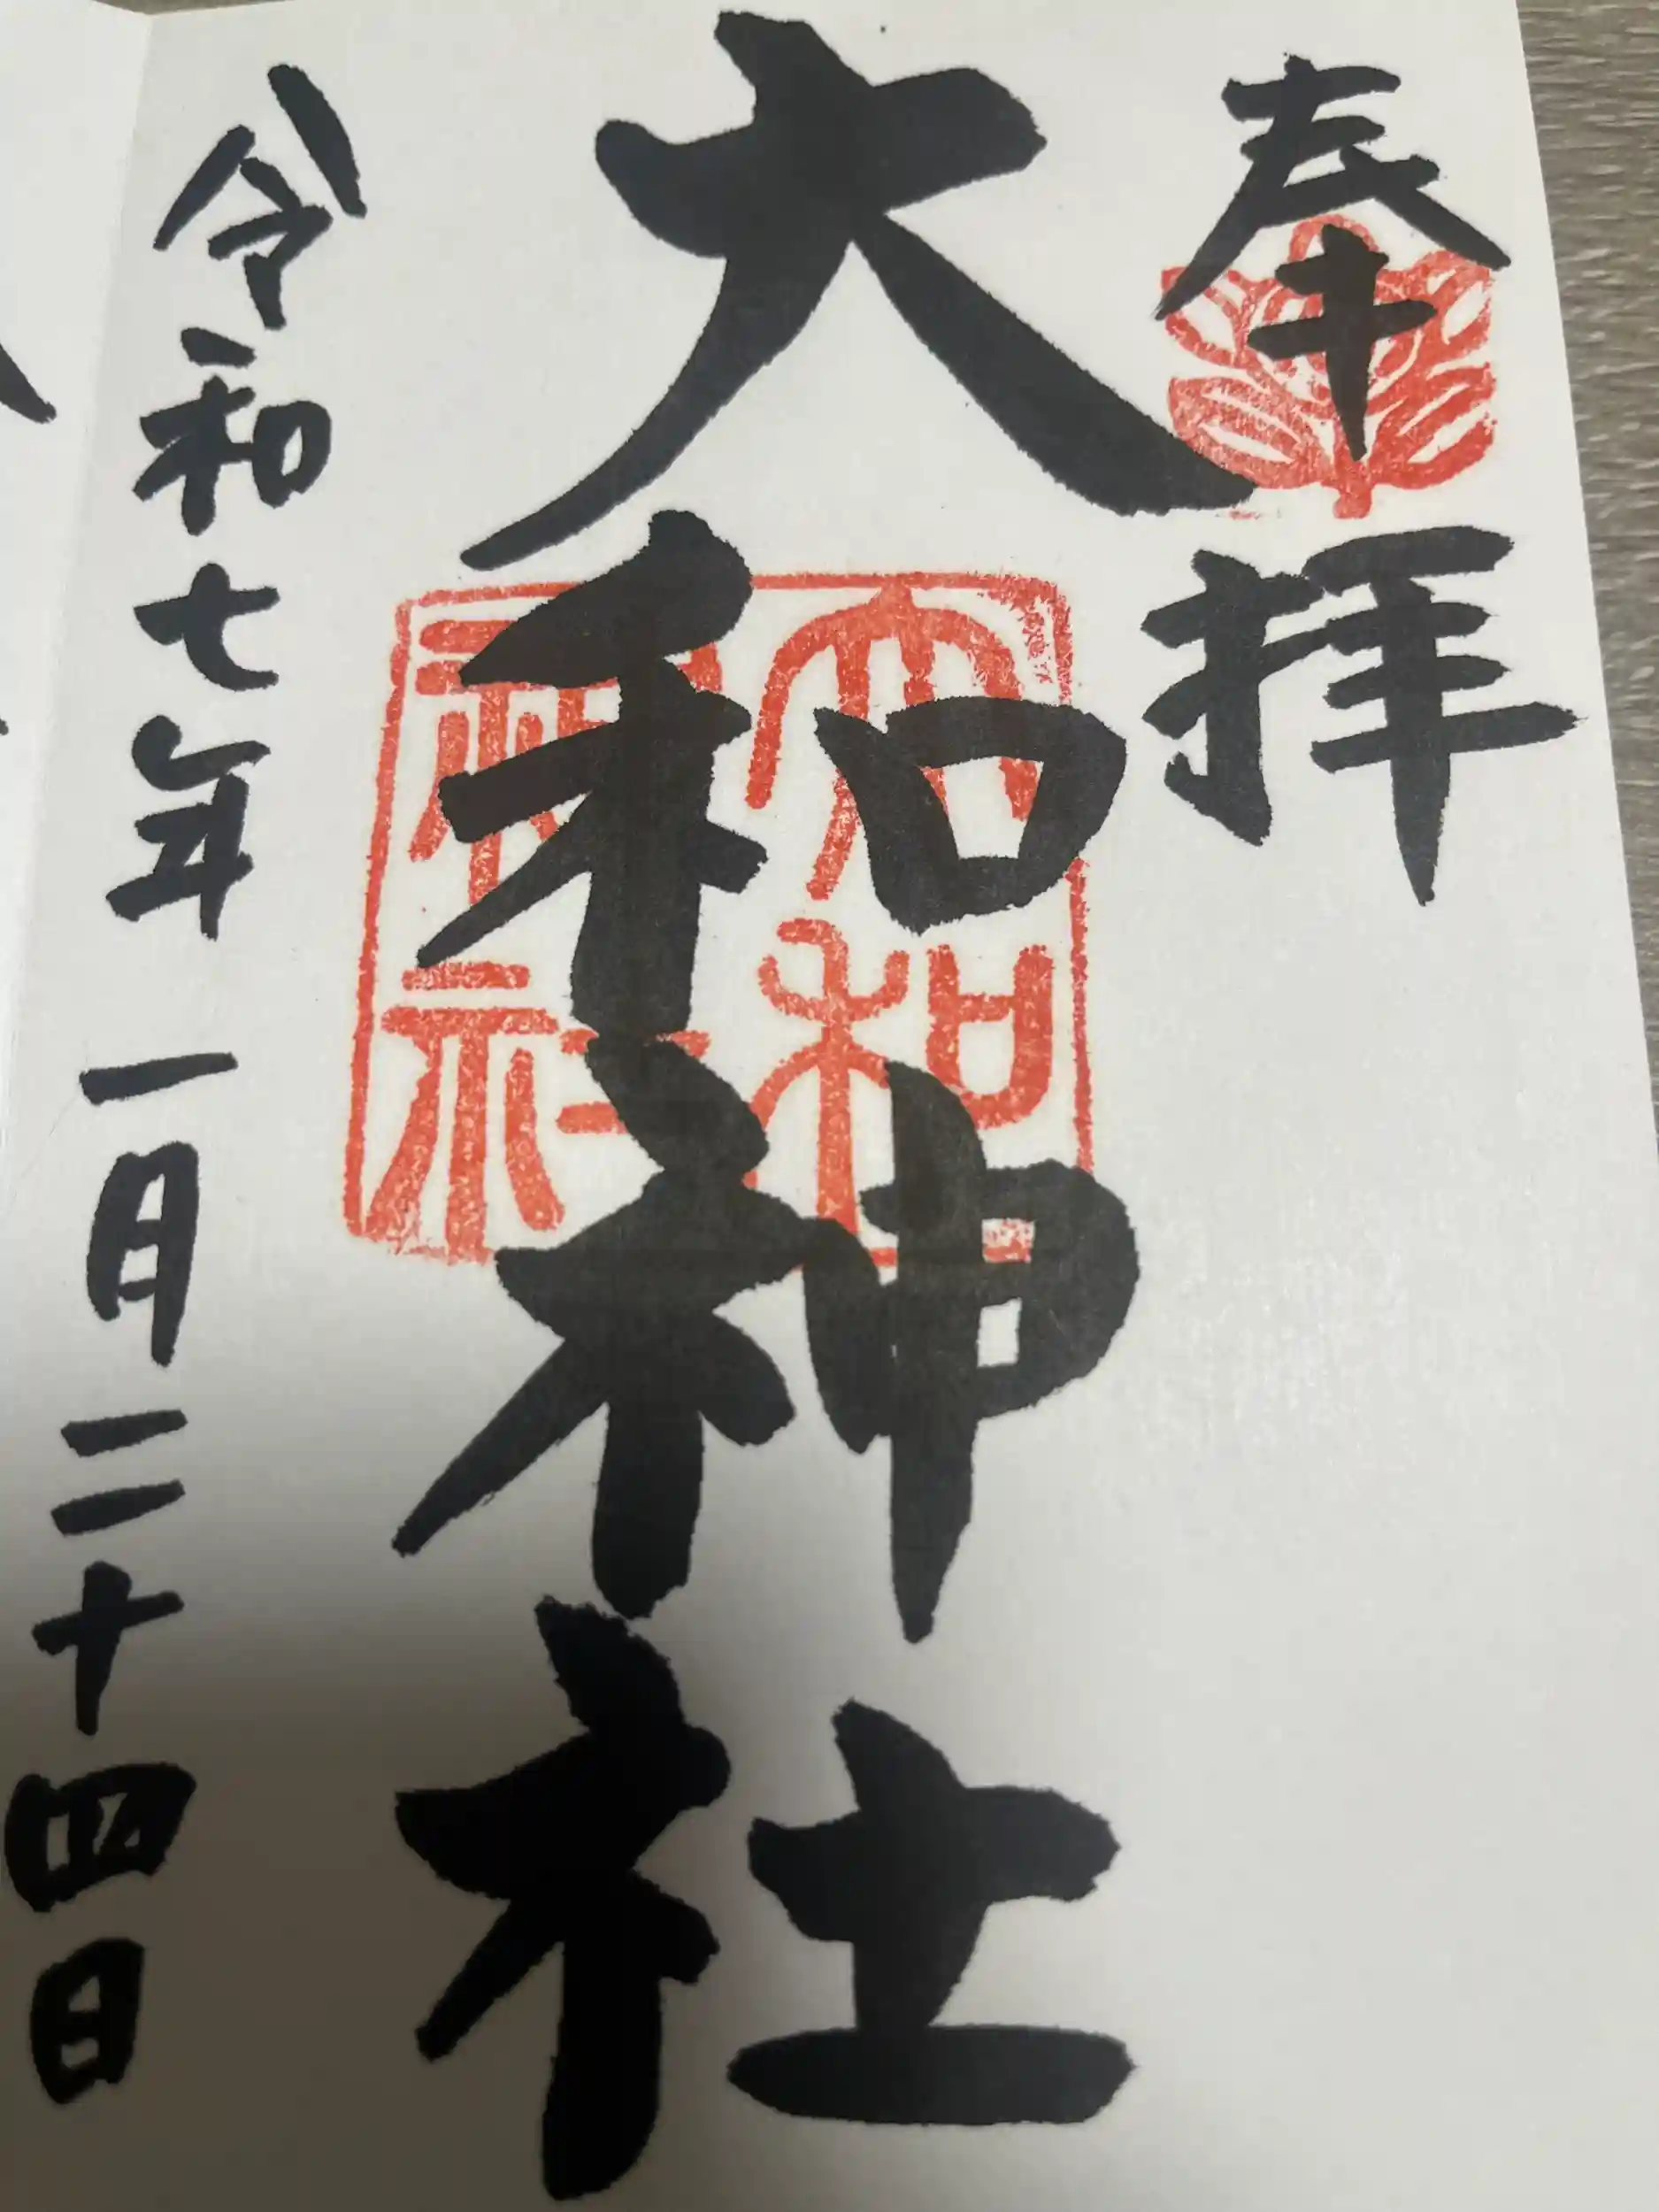 奉拝
大和神社
大和
神社
令和七年一月二十四日